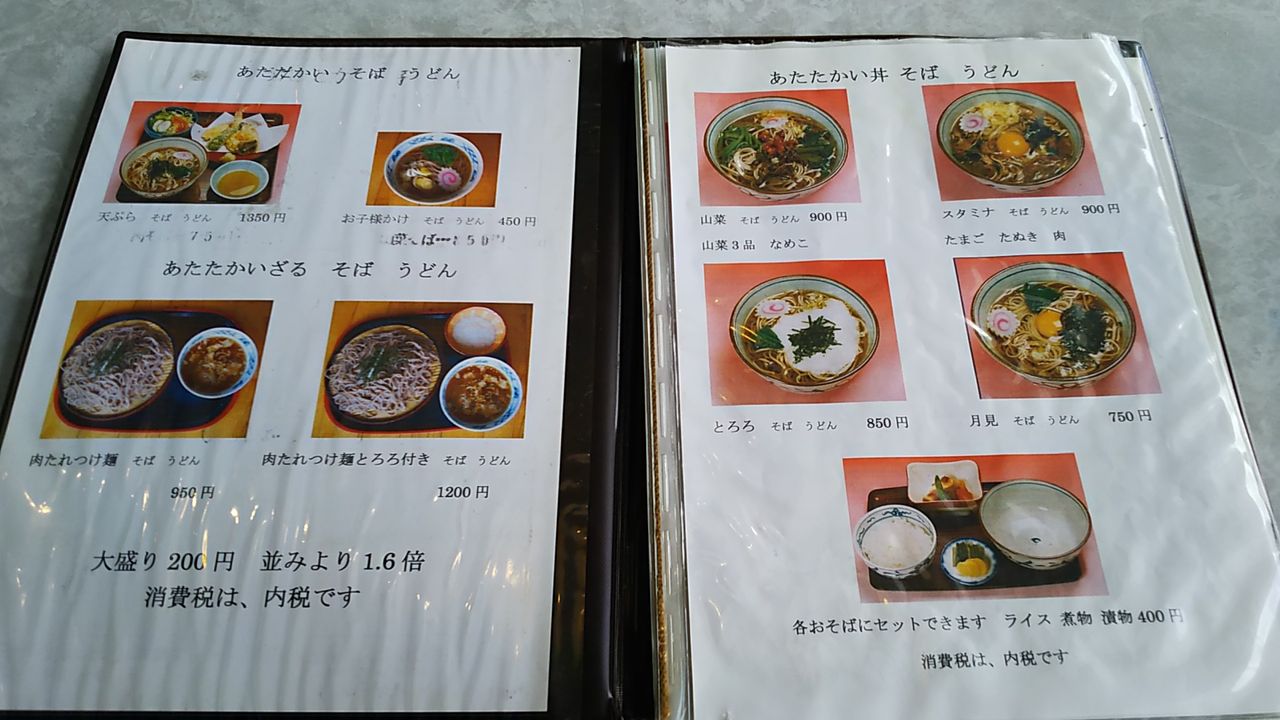 あたたかい そば うどん
天ぷら そば うどん 1350円
お子様かけ そば うどん 450円
あたたかいざる そば うどん
肉たれつけ麺 そば うどん
950円
肉たれつけ麺とろろ付き そば うどん
1200円
大盛り200円 並みより1.6倍
消費税は、内税です
あたたかい丼 そば うどん
山菜 そば うどん 900円
山菜3品 なめこ
スタミナ そば うどん 900円
たまご たぬき 肉
とろろ そば うどん 850円
月見 そば うどん 750円
各おそばにセットできます ライス 煮物 漬物400円
消費税は、内税です